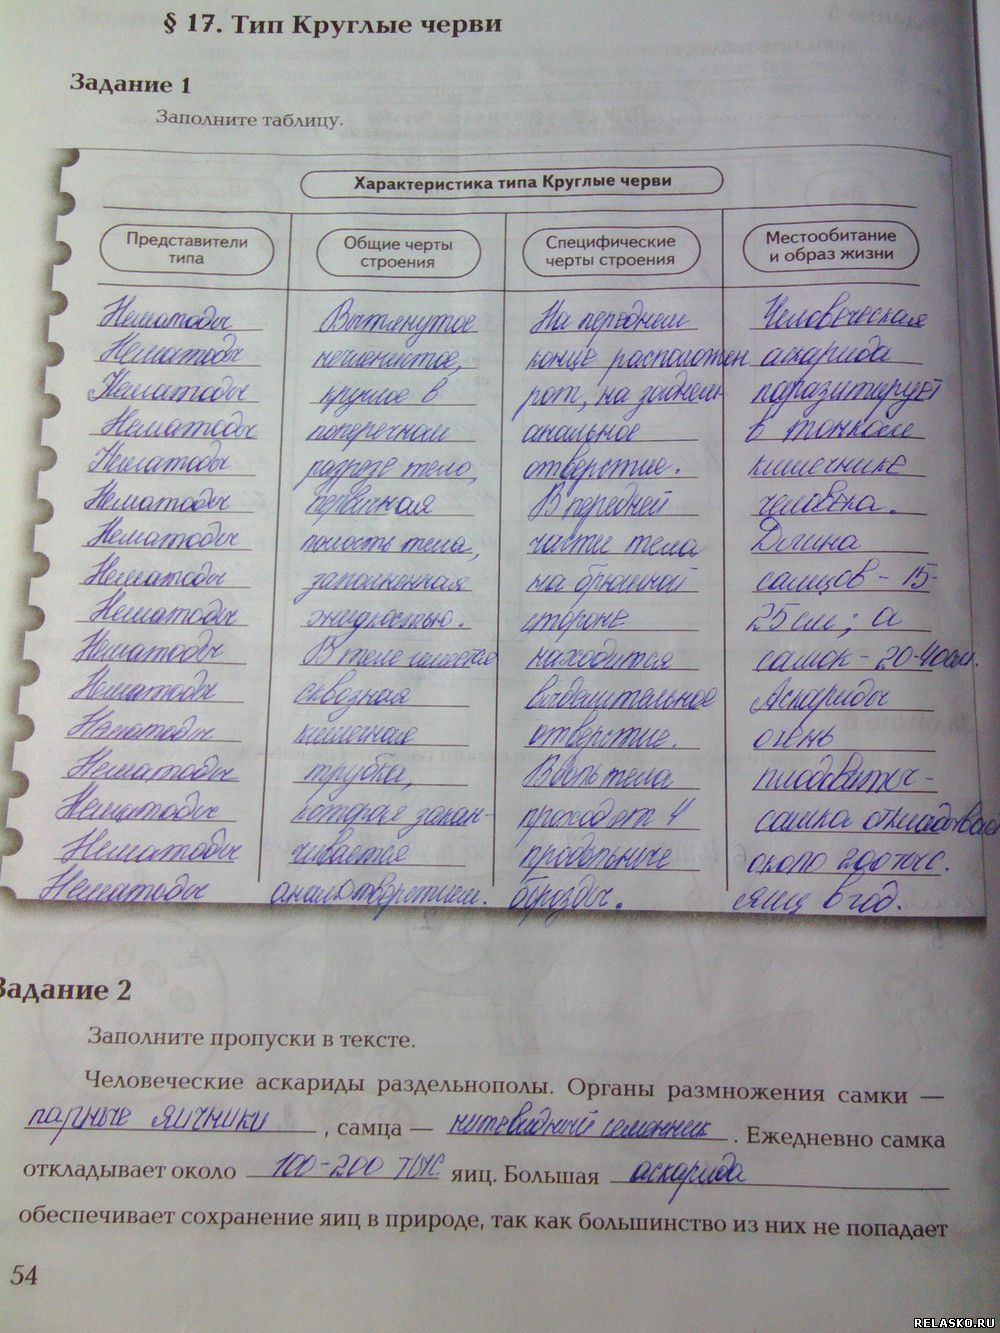 § 17. Тип Круглые черви
Задание 1
Заполните таблицу.
Характеристика типа Круглые черви
Представители типа Общие черты строения Специфические черты строения Местообитание и образ жизни
Нематоды Вытянутое На переднем Человеческая
Нематоды нечленистое, конце расположен аскарида
Нематоды круглое в рот, на заднем паразитирует
Нематоды поперечном анальное в тонком
Нематоды разрезе тело, отверстие. кишечнике
Нематоды первичная В передней человека.
Нематоды полость тела, части тела Длина
Нематоды заполненная на брюшной самцов - 15-
Нематоды жидкостью. стороне 25 см; а
Нематоды В теле находится самок - 20-40 см.
Нематоды сквозная выделительное Аскариды
Нематоды кишечная отверстие. очень
Нематоды трубка, Вдоль тела плодовиты -
Нематоды которая закан- проходят 4 самка откладывает
Нематоды чивается продольные около 200 тыс.
Нематоды анал. отверстием. борозды. яиц в год.
Задание 2
Заполните пропуски в тексте.
Человеческие аскариды раздельнополы. Органы размножения самки —
парные яичники , самца — нитевидный семенник . Ежедневно самка
откладывает около 100-200 тыс. яиц. Большая аскарида
обеспечивает сохранение яиц в природе, так как большинство из них не попадает
54
RELASKO.RU